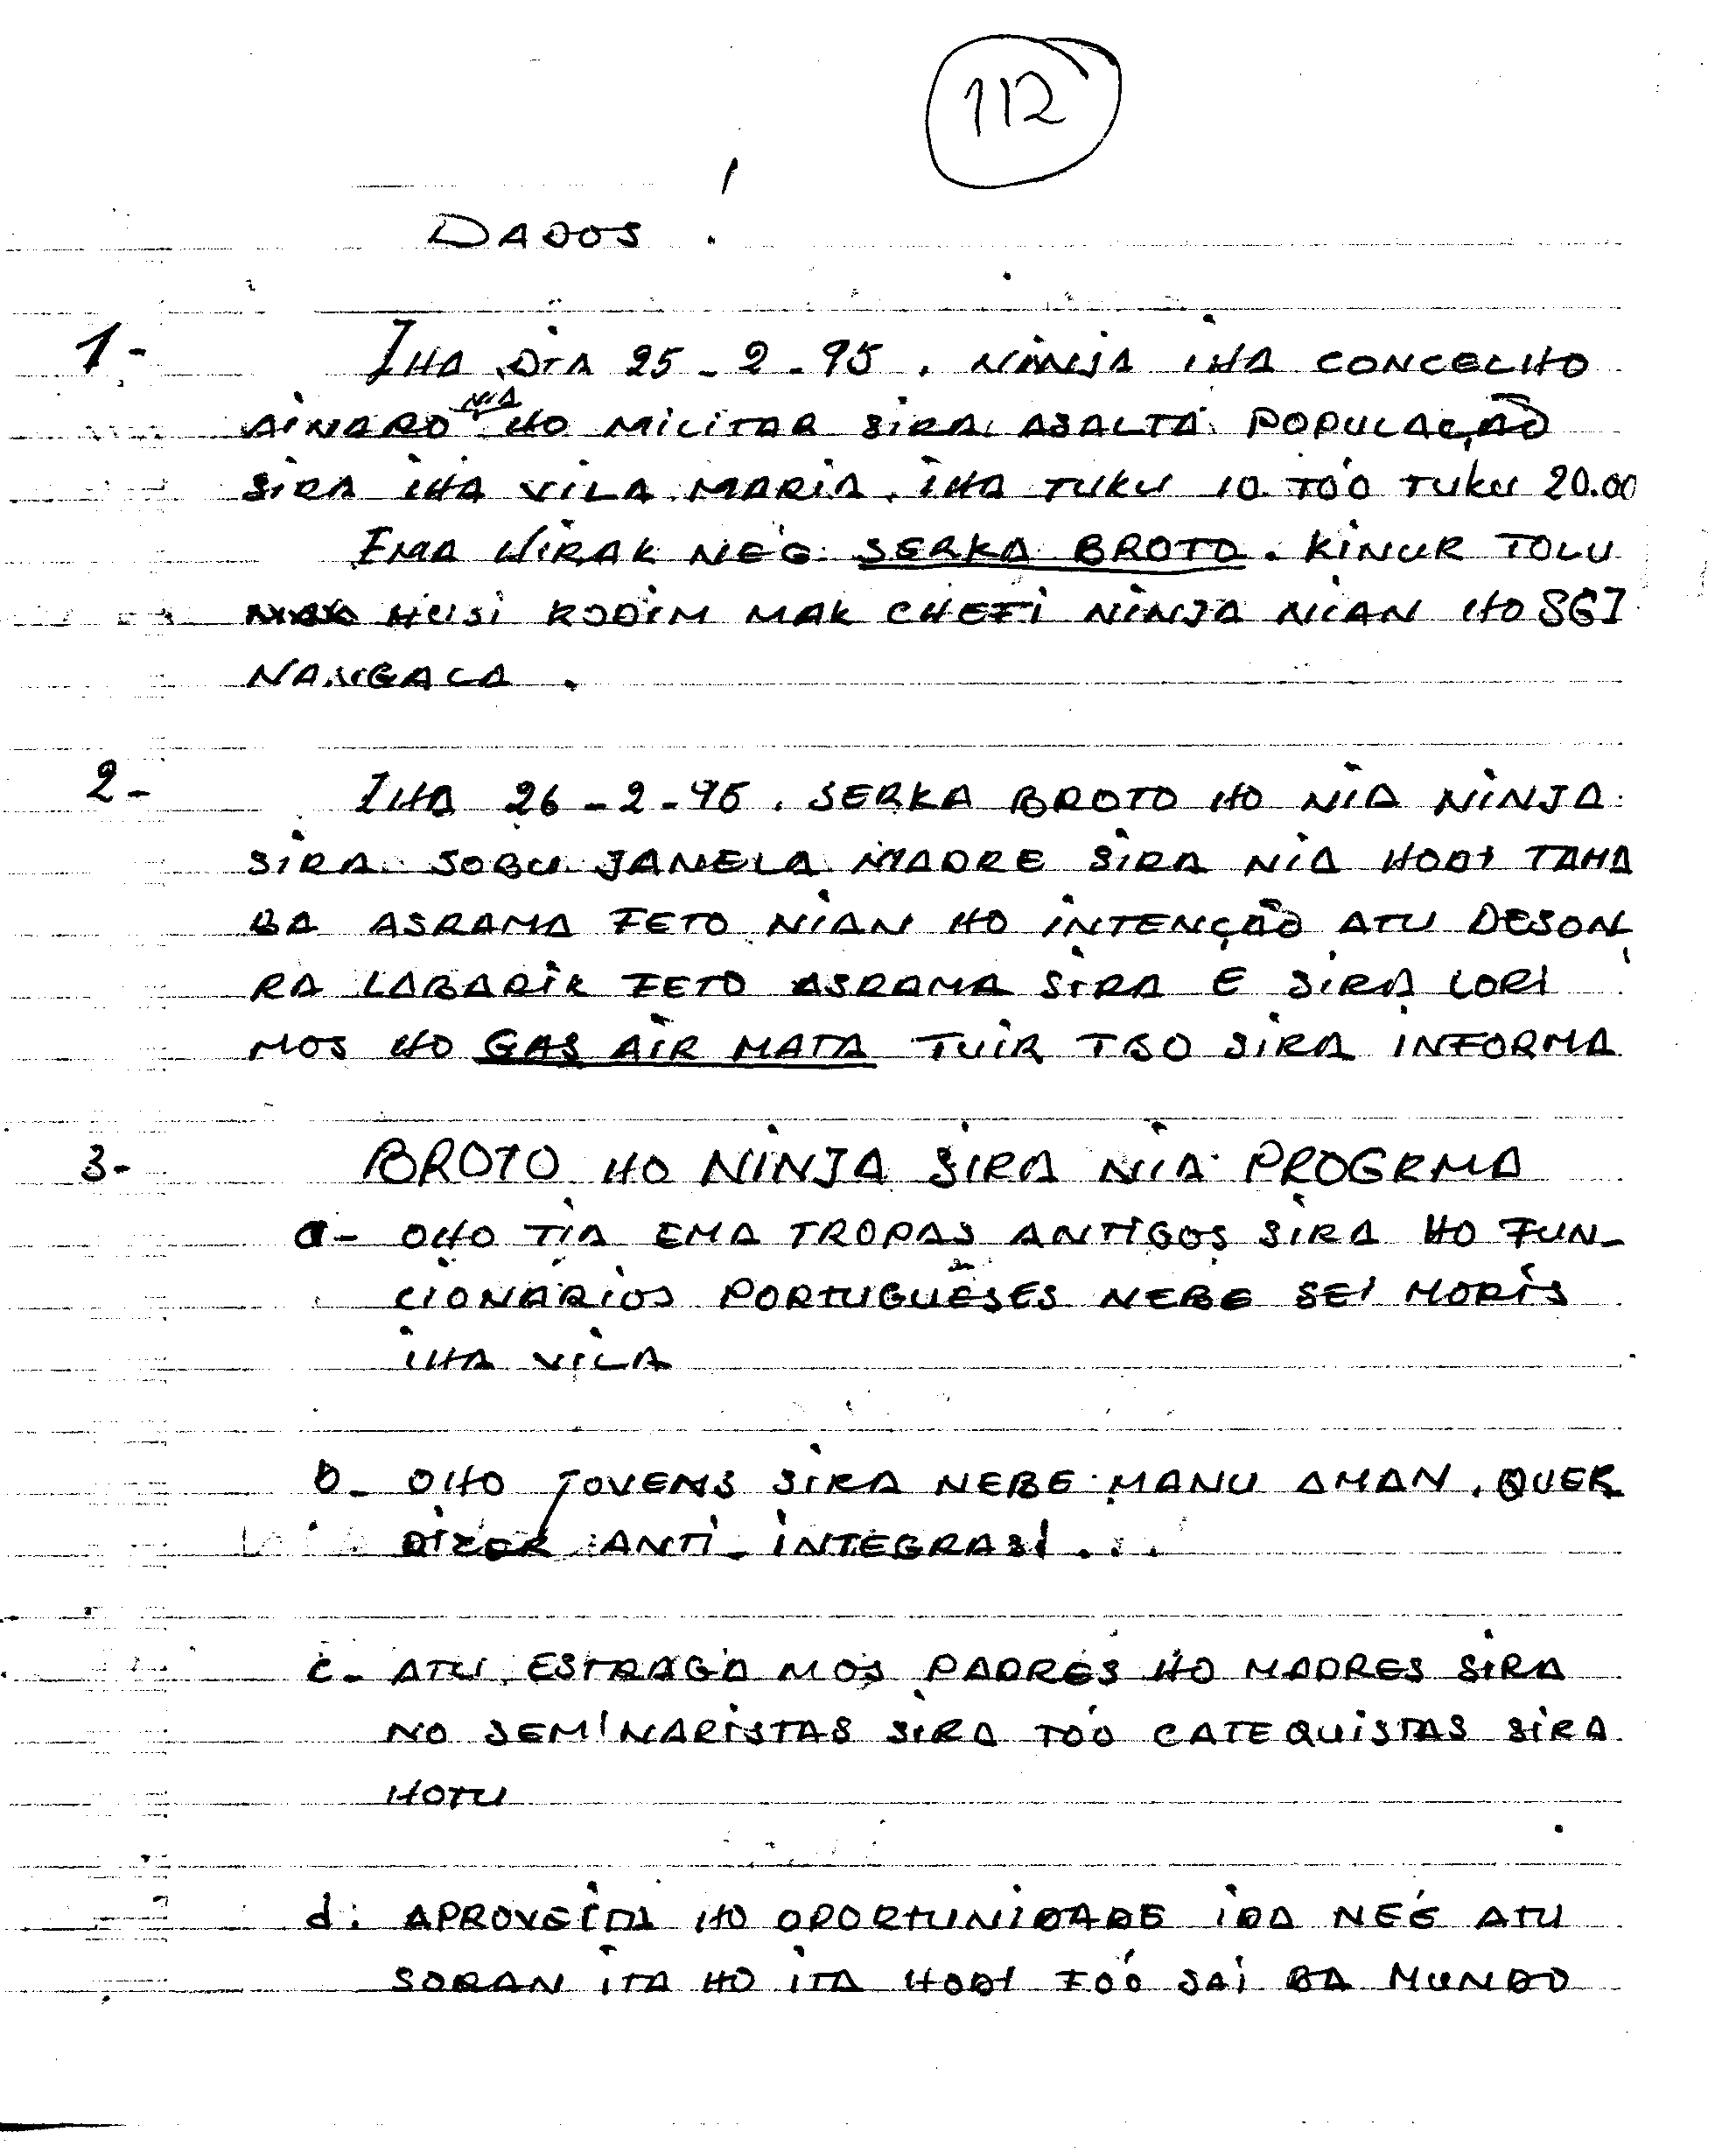 112
DADOS !
1- IHA DIA 25-2-95. NINJA IHA CONCELHO
AINARO NIA HO MILITAR SIRA ASALTA POPULAÇÃO
SIRA IHA VILA MARIA. IHA TUKU 10 TÓO TUKU 20.00
EMA HIRAK NÉG SERKA BROTO. KINUR TOLU
HUSI KODIM MAK CHEFI NINJA NIAN HO SGI
NANGALA.
2- IHA 26-2-95. SERKA BROTO HO NIA NINJA
SIRA SOBU JANELA MADRE SIRA NIA HODI TAMA
BA ASRAMA FETO NIAN HO INTENÇÃO ATU DESON
RA LABARIK FETO ASRAMA SIRA E SIRA LORI
MOS HO GAS AIR MATA TUIR TBO SIRA INFORMA
3- BROTO HO NINJA SIRA NIA PROGRMA
a- OHO TIA EMA TROPAS ANTIGOS SIRA HO FUN-
CIONÁRIOS PORTUGUÊSES NEBE SEI MORIS
IHA VILA
b- OHO JOVENS SIRA NEBE MANU AMAN. QUER
DIZER ANTI-INTEGRASI...
c- ATU ESTRAGA MOS PADRES HO MADRES SIRA
NO SEMINARISTAS SIRA TÓO CATEQUISTAS SIRA
HOTU
d. APROVEITA HO OPORTUNIDADE IDA NÉÉ ATU
SORAN ITA HO ITA HODI FÓO SAI BA MUNDO